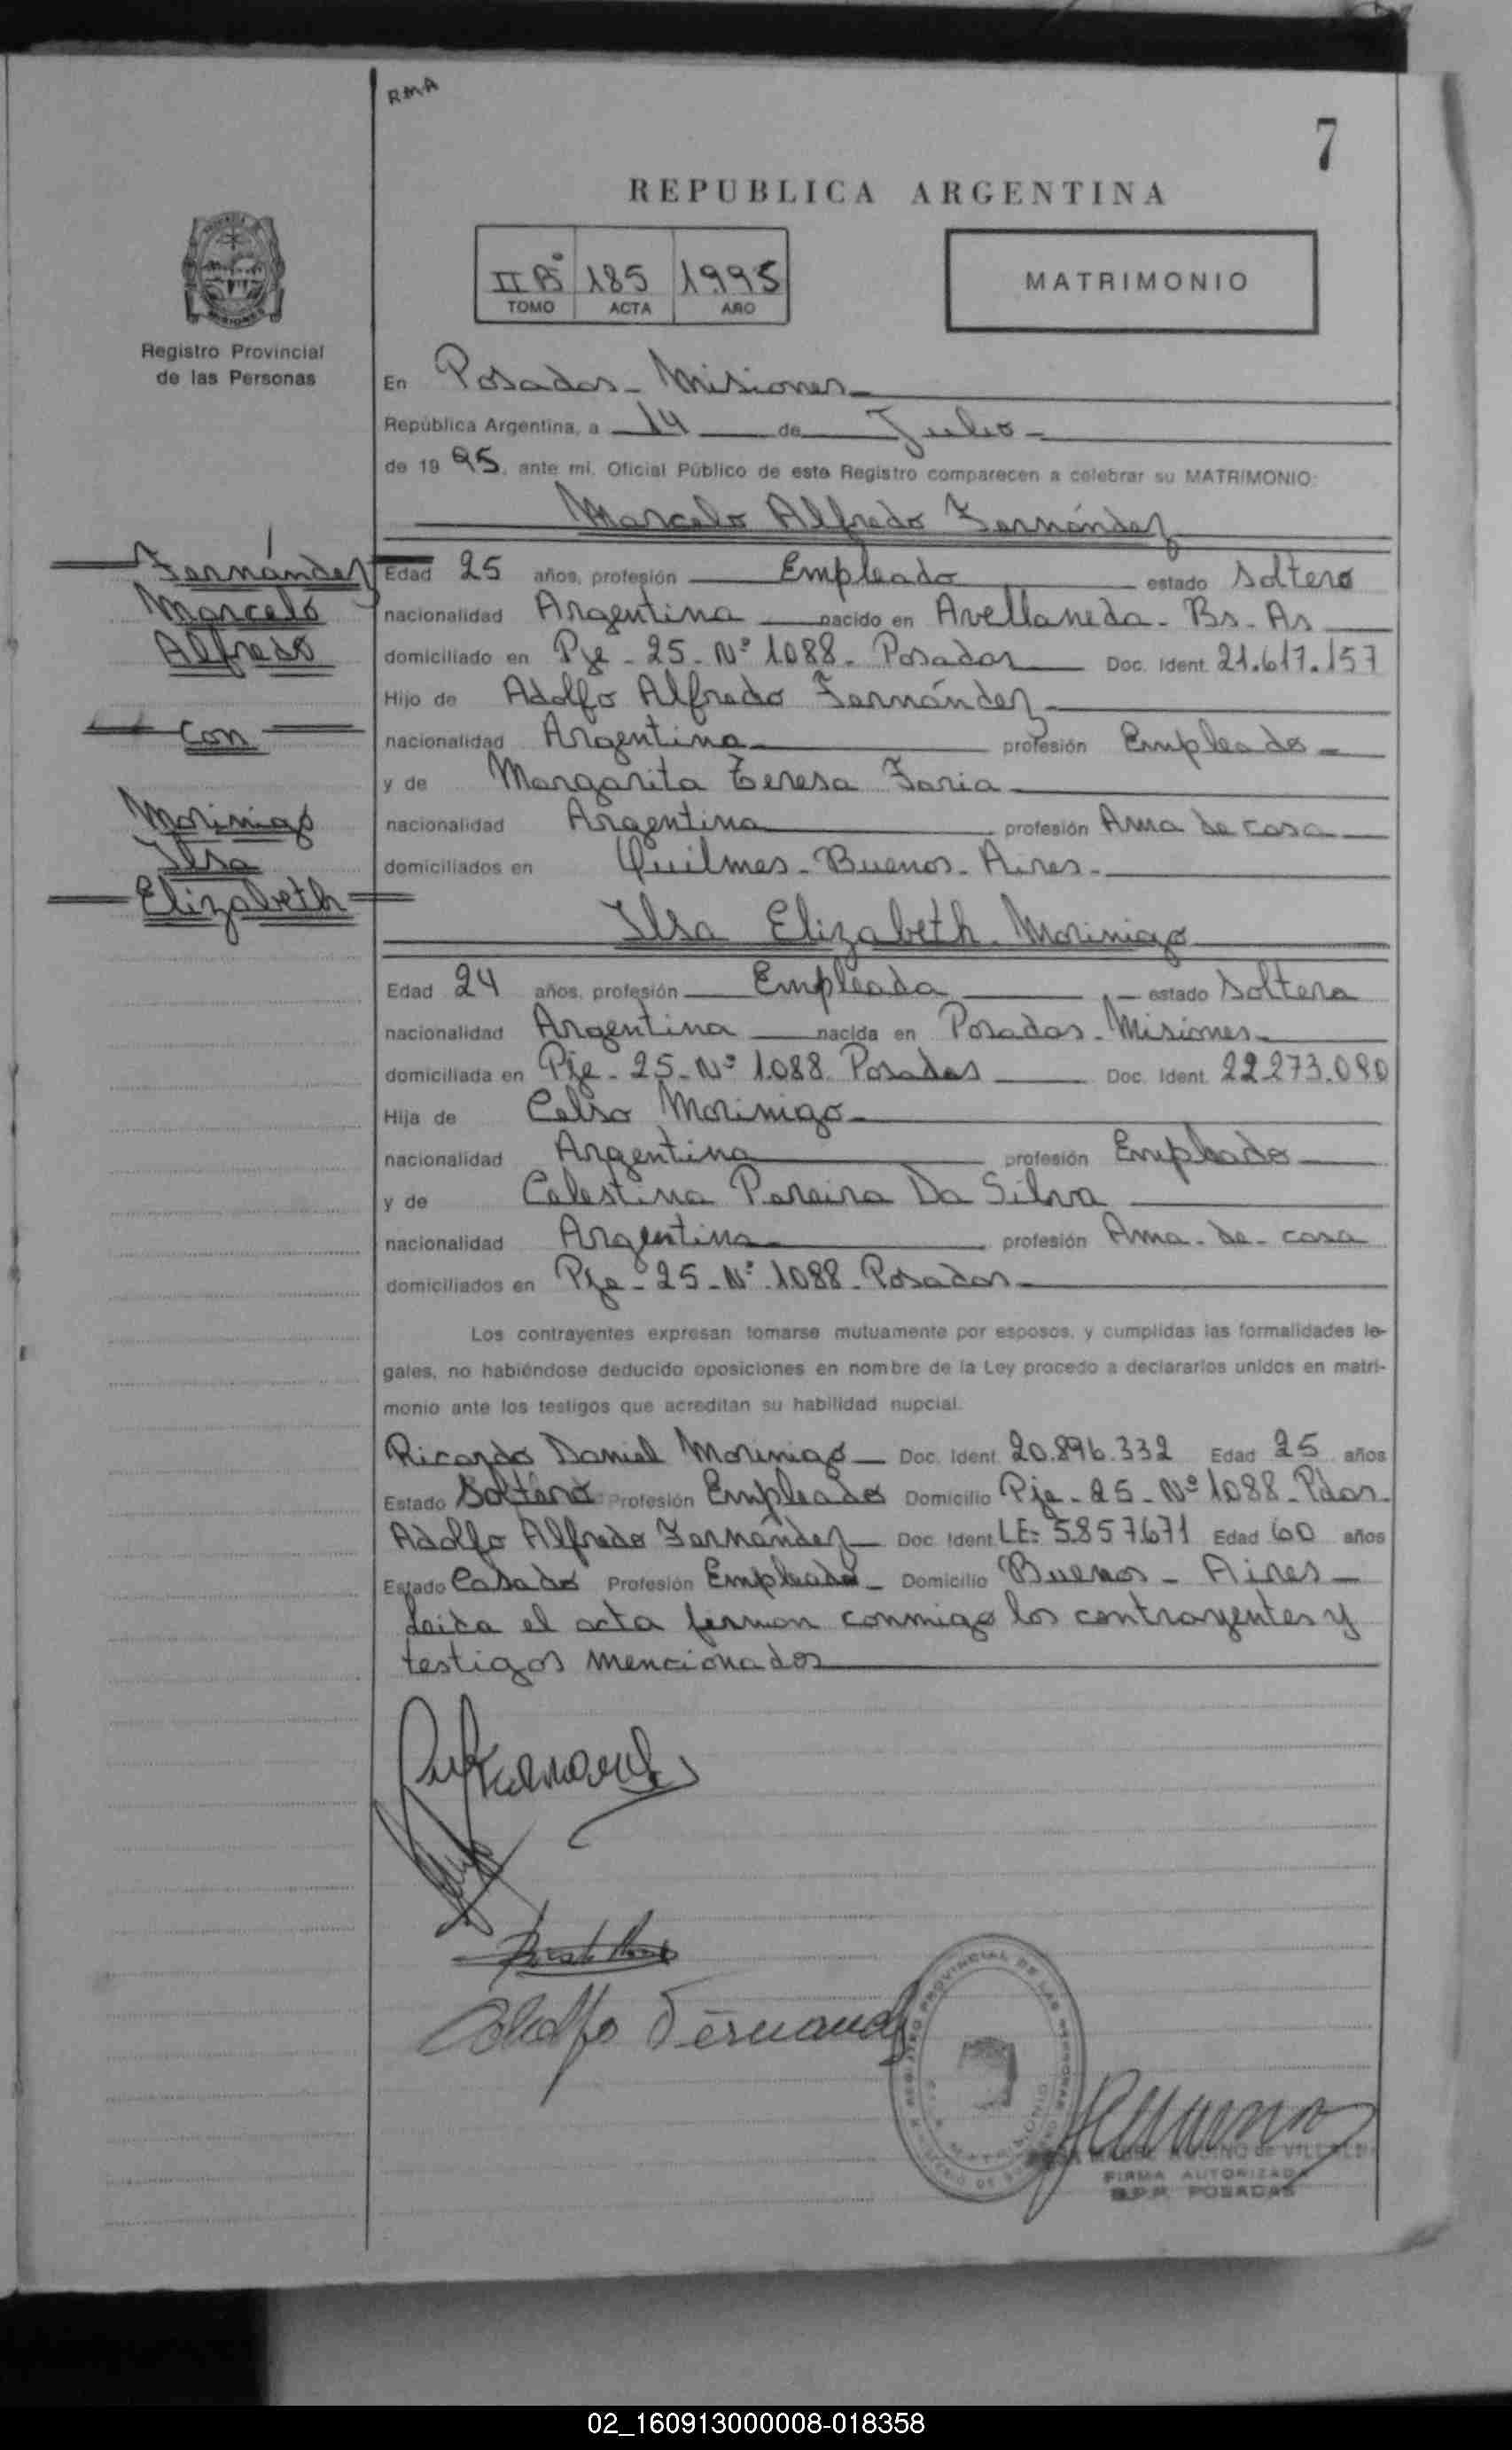 RMA
7
REPUBLICA ARGENTINA
II Bº 185 1995
TOMO ACTA AÑO
MATRIMONIO
MISIONES
Registro Provincial
de las Personas
En Posadas - Misiones
República Argentina, a 14 de Julio
de 1995, ante mi, Oficial Público de este Registro comparecen a celebrar su MATRIMONIO:
Marcelo Alfredo Fernández
Fernández
Marcelo
Alfredo
Con
Morinigo
Ilsa
Elizabeth
Edad 25 años, profesión Empleado estado Soltero
nacionalidad Argentina nacido en Avellaneda - Bs - As
domiciliado en Pje - 25 - Nº 1088 - Posadas Doc. Ident. 21.617.157
Hijo de Adolfo Alfredo Fernández
nacionalidad Argentina profesión Empleado
y de Margarita Teresa Faria
nacionalidad Argentina profesión Ama de casa
domiciliados en Quilmes - Buenos - Aires -
Ilsa Elizabeth Morinigo
Edad 24 años, profesión Empleada estado Soltera
nacionalidad Argentina nacida en Posadas - Misiones
domiciliada en Pje - 25 - Nº 1088 Posadas Doc. Ident. 22.273.090
Hija de Celso Morinigo
nacionalidad Argentina profesión Empleado
y de Celestina Pereira Da Silva
nacionalidad Argentina profesión Ama - de - casa
domiciliados en Pje - 25 - Nº 1088 - Posadas
Los contrayentes expresan tomarse mutuamente por esposos, y cumplidas las formalidades le-
gales, no habiéndose deducido oposiciones en nombre de la Ley procedo a declararlos unidos en matri-
monio ante los testigos que acreditan su habilidad nupcial.
Ricardo Daniel Morinigo Doc. Ident. 20.896.332 Edad 25 años
Estado Soltero Profesión Empleado Domicilio Pje - 25 - Nº 1088 - Pdas.
Adolfo Alfredo Fernández Doc. Ident. LE: 5857671 Edad 60 años
Estado Casado Profesión Empleado Domicilio Buenos - Aires -
Leida el acta firman conmigo los contrayentes y
testigos mencionados
Adolfo Fernandez
REGISTRO PROVINCIAL DE LAS PERSONAS
MATRIMONIO
DE VILLALBA
FIRMA AUTORIZADA
R.P.P. POSADAS
02_160913000008-018358